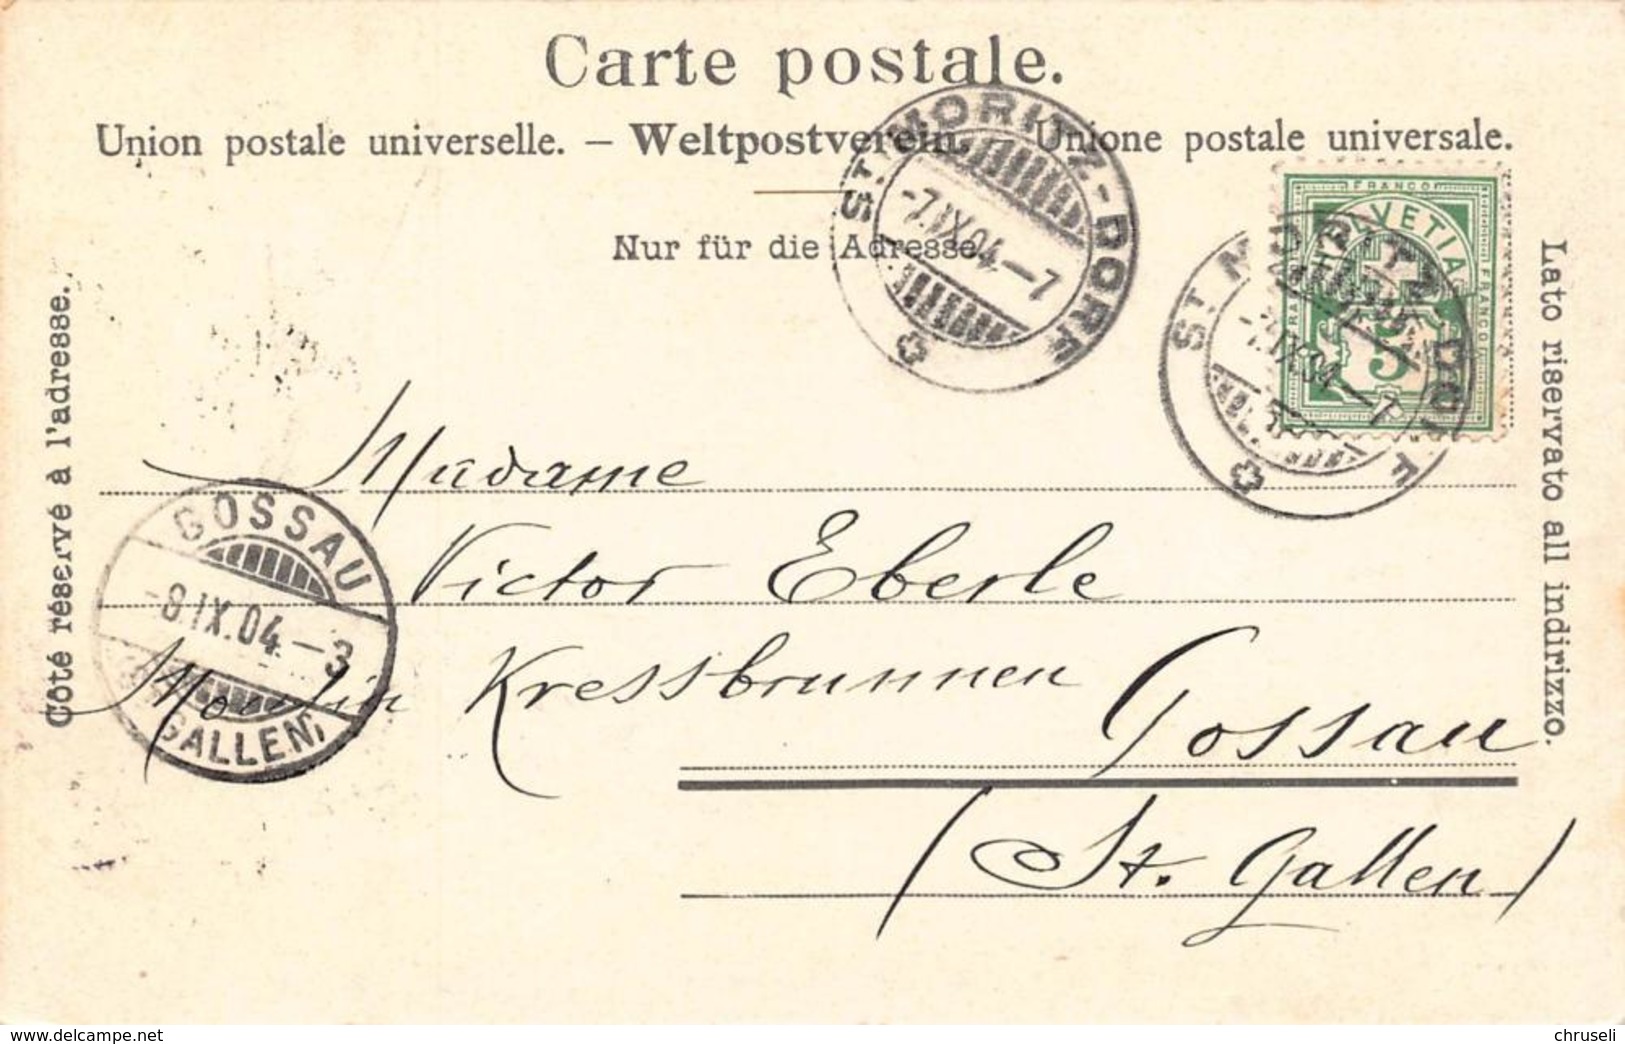 Carte postale.
Union postale universelle. – Weltpostverein. – Unione postale universale.
Nur für die Adresse.
Côté réservé à l'adresse.
Lato riservato all indirizzo.
ST. MORITZ-DORF
-7.IX.04.-7
FRANCO
HELVETIA
FRANCO
FRANCO
5
ST. MORITZ DORF
-7.IX.04-7
GOSSAU
-8.IX.04.-3
(ST. GALLEN)
Madame
Victor Eberle
Moulin Kressbrunnen Gossau
(St. Gallen)
www.delcampe.net
chruseli